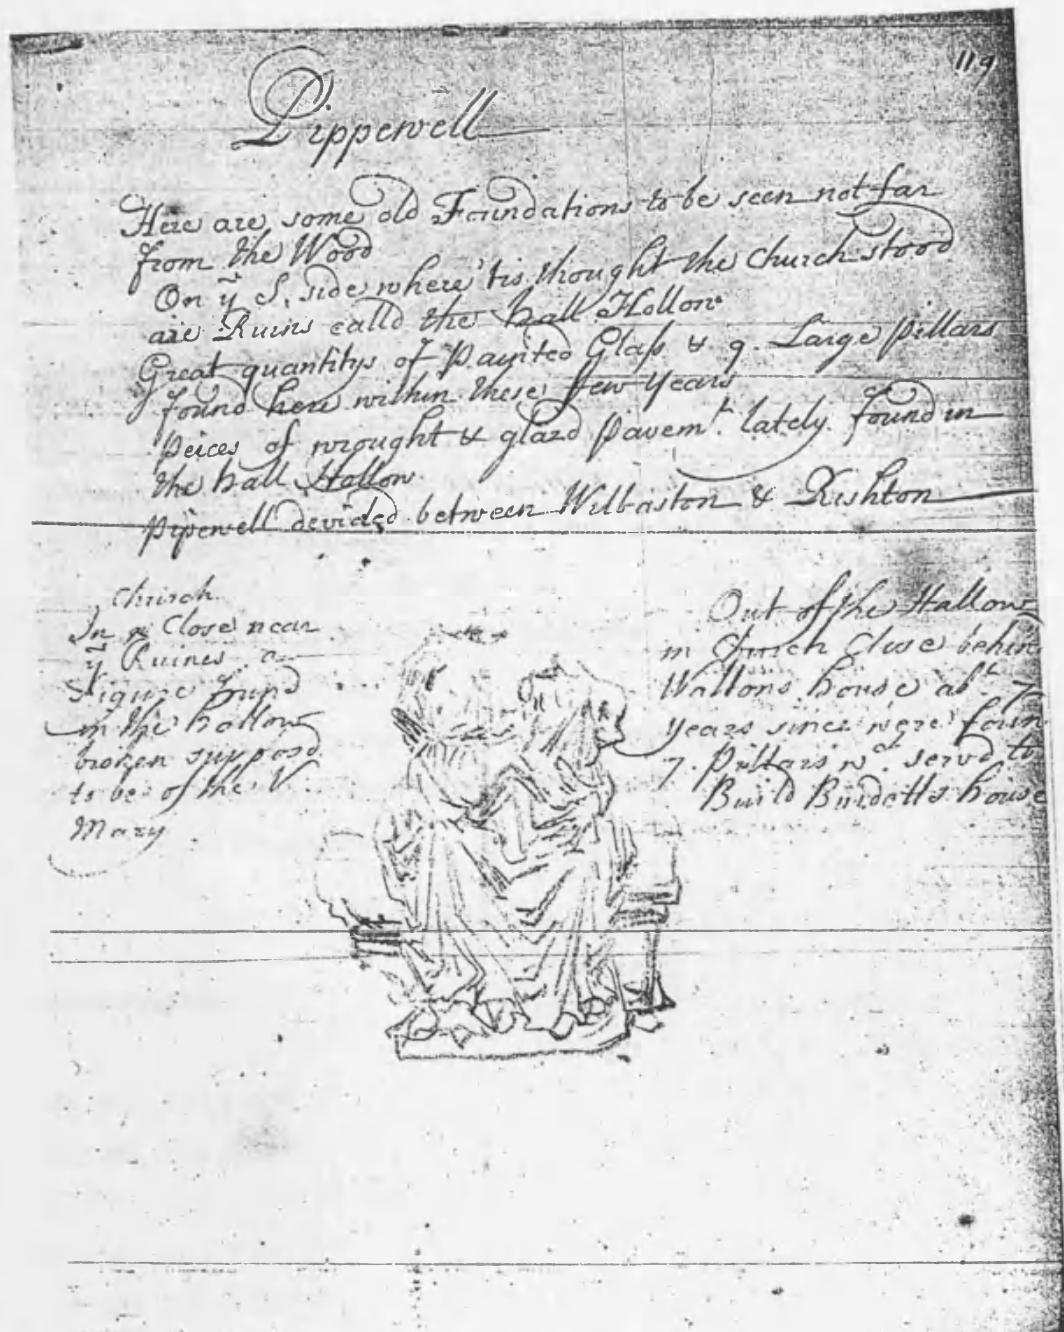 119
Pippewell
Here are some old Foundations to be seen not far
from the Wood
On ye S. side where 'tis thought the Church stood
are Ruins calld the hall Hollow
Great quantitys of Paynted Glass & 9. Large Pillars
found here within these few years
Peices of wrought & glazd Pavemt. lately found in
the hall Hollow
Pipewell devided between Wilbaston & Rishton
Church
In a Close near
ye Ruines a
Figure found
in the hollow
broken supposd
to be of the V.
Mary
Out of the Hallow
in Church Close behin
Wallons house abt. 7
years since were foun
7. Pillars wc. servd to
Build Burdetts house